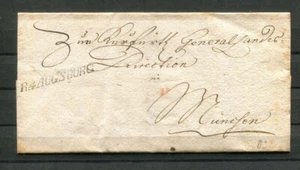 Zur Kurfürstl General Landes-
Direction
in
R.4.AUGSBURG
München